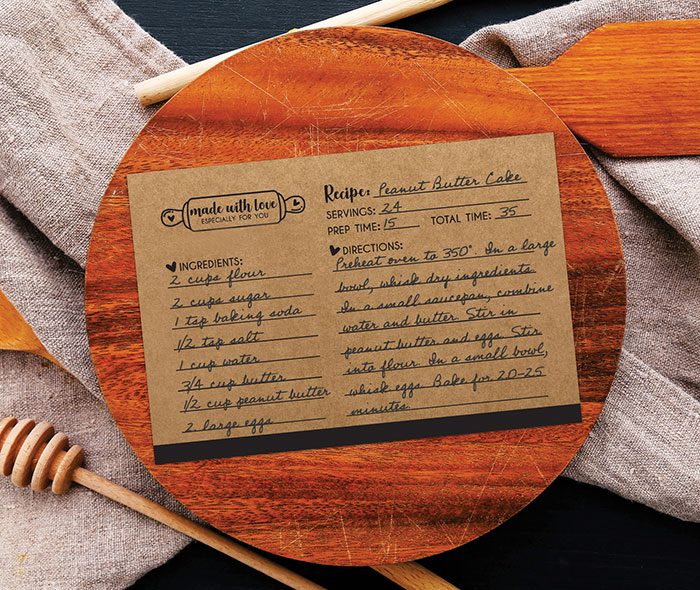 made with love
ESPECIALLY FOR YOU
Recipe: Peanut Butter Cake
SERVINGS: 24
PREP TIME: 15 TOTAL TIME: 35
INGREDIENTS:
2 cups flour
2 cups sugar
1 tsp baking soda
1/2 tsp salt
1 cup water
3/4 cup butter
1/2 cup peanut butter
2 large eggs
DIRECTIONS:
Preheat oven to 350°. In a large
bowl, whisk dry ingredients.
In a small saucepan, combine
water and butter. Stir in
peanut butter and eggs. Stir
into flour. In a small bowl,
whisk eggs. Bake for 20-25
minutes.